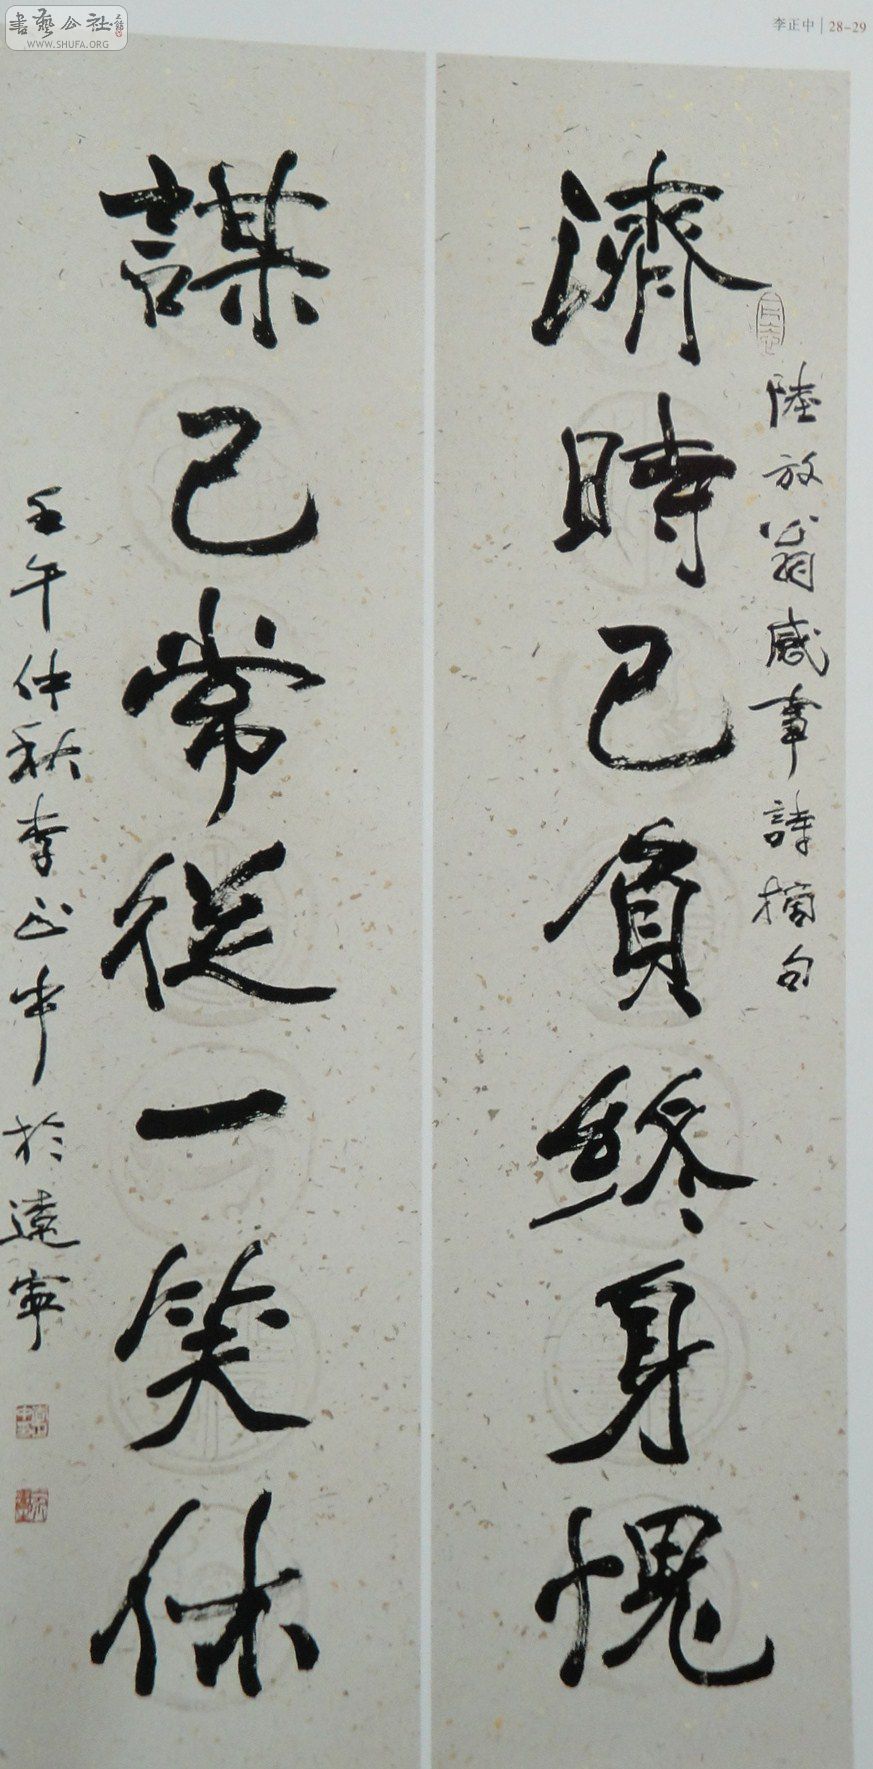 書藝公社
WWW.SHUFA.ORG
李正中 | 28-29
陸放翁感事詩摘句
濟時已負終身愧
謀己常從一笑休
壬午仲秋李正中於遼寧